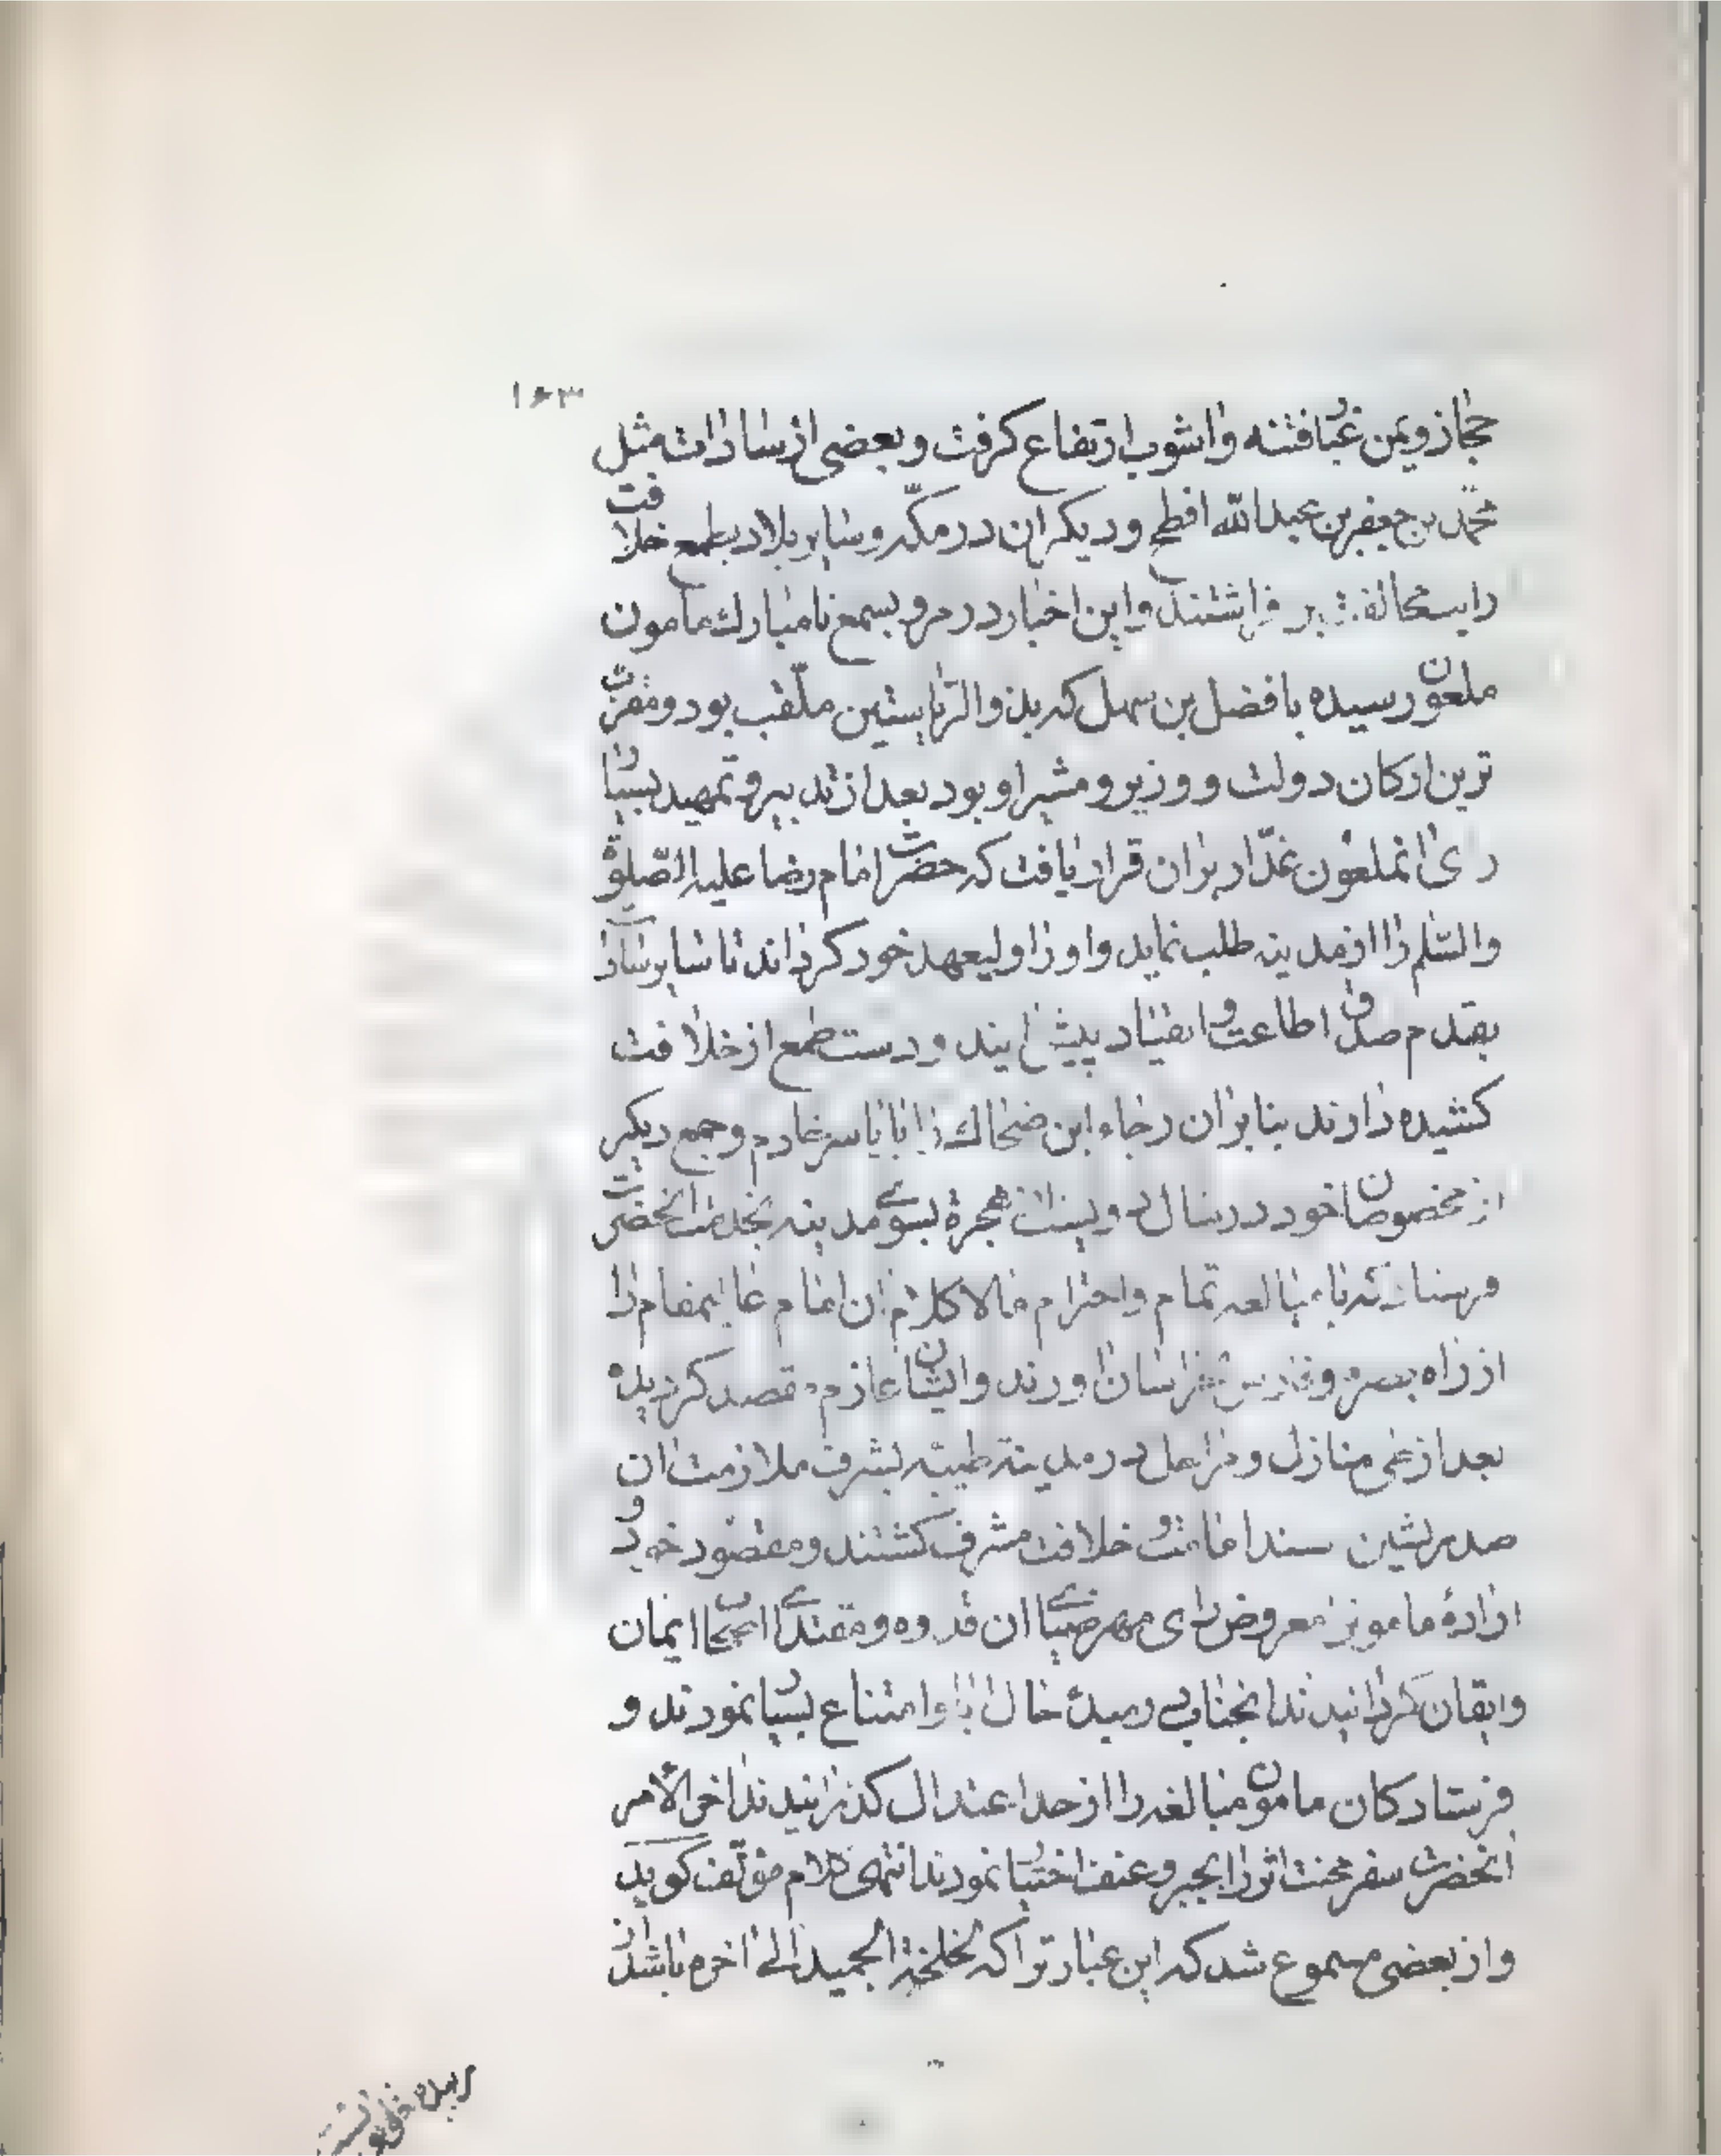 ۱۶۳
حجاز و یمن غبار فتنه و اشوب ارتفاع کرفت و بعضی از سادات مثل
محمّد بن جعفر بن عبدالله افطح و دیکران در مکّه و سایر بلاد بطمع خلافت
رایت مخالفت بر فراشتند و این اخبار در مرو بسمع نامبارك مامون
ملعون رسیده با فضل بن سهل که بذو الرّیاستین ملّقب بود و مقرّب
ترین ارکان دولت و وزیر و مشیر او بود بعد از تدبیر و تمهید بسیار
رای انملعون غدّار بران قرار یافت که حضرت امام رضا علیه الصّلوة
والسّلم را از مدینه طلب نماید و او را ولیعهد خود کرداند تا سایر سادات
بقدم صدق اطاعت و انقیاد پیش ایند و دست طمع از خلافت
کشیده دارند بنا بران رجاء ابن ضحاك را با یاسر خادم و جمع دیکر
از مخصوصان خود در سال دویست هجرة بسوی مدینه بخدمت انحضرت
فرستاد که با مبالغه تمام و احترام مالا کلام ان امام عالیمقام را
از راه بصره و فارس بخراسان اورند و ایشان عازم مقصد کردیده
بعد از طی منازل و مراحل در مدینۀ طیبّه بشرف ملازمت ان
صدر نشین مسند امامت و خلافت مشرف کشتند و مقصود خود و
ارادۀ مامونرا معروض رای مهر ضیای ان قدوه و مقتدای اصحاب ایمان
وایقان کردانیدند انجناب در مبدء حال ابا و امتناع بسیار نمودند و
فرستادکان مامون مبالغه را از حد اعتدال کذرانیدند اخر الأمر
انحضرت سفر محنت اثر را بجبر و عنف اختیار نمودند انتهی کلام مؤلّف کوید
و از بعضی مسموع شد که این عبارت را که لخلخة الجمید الی اخره باشد از